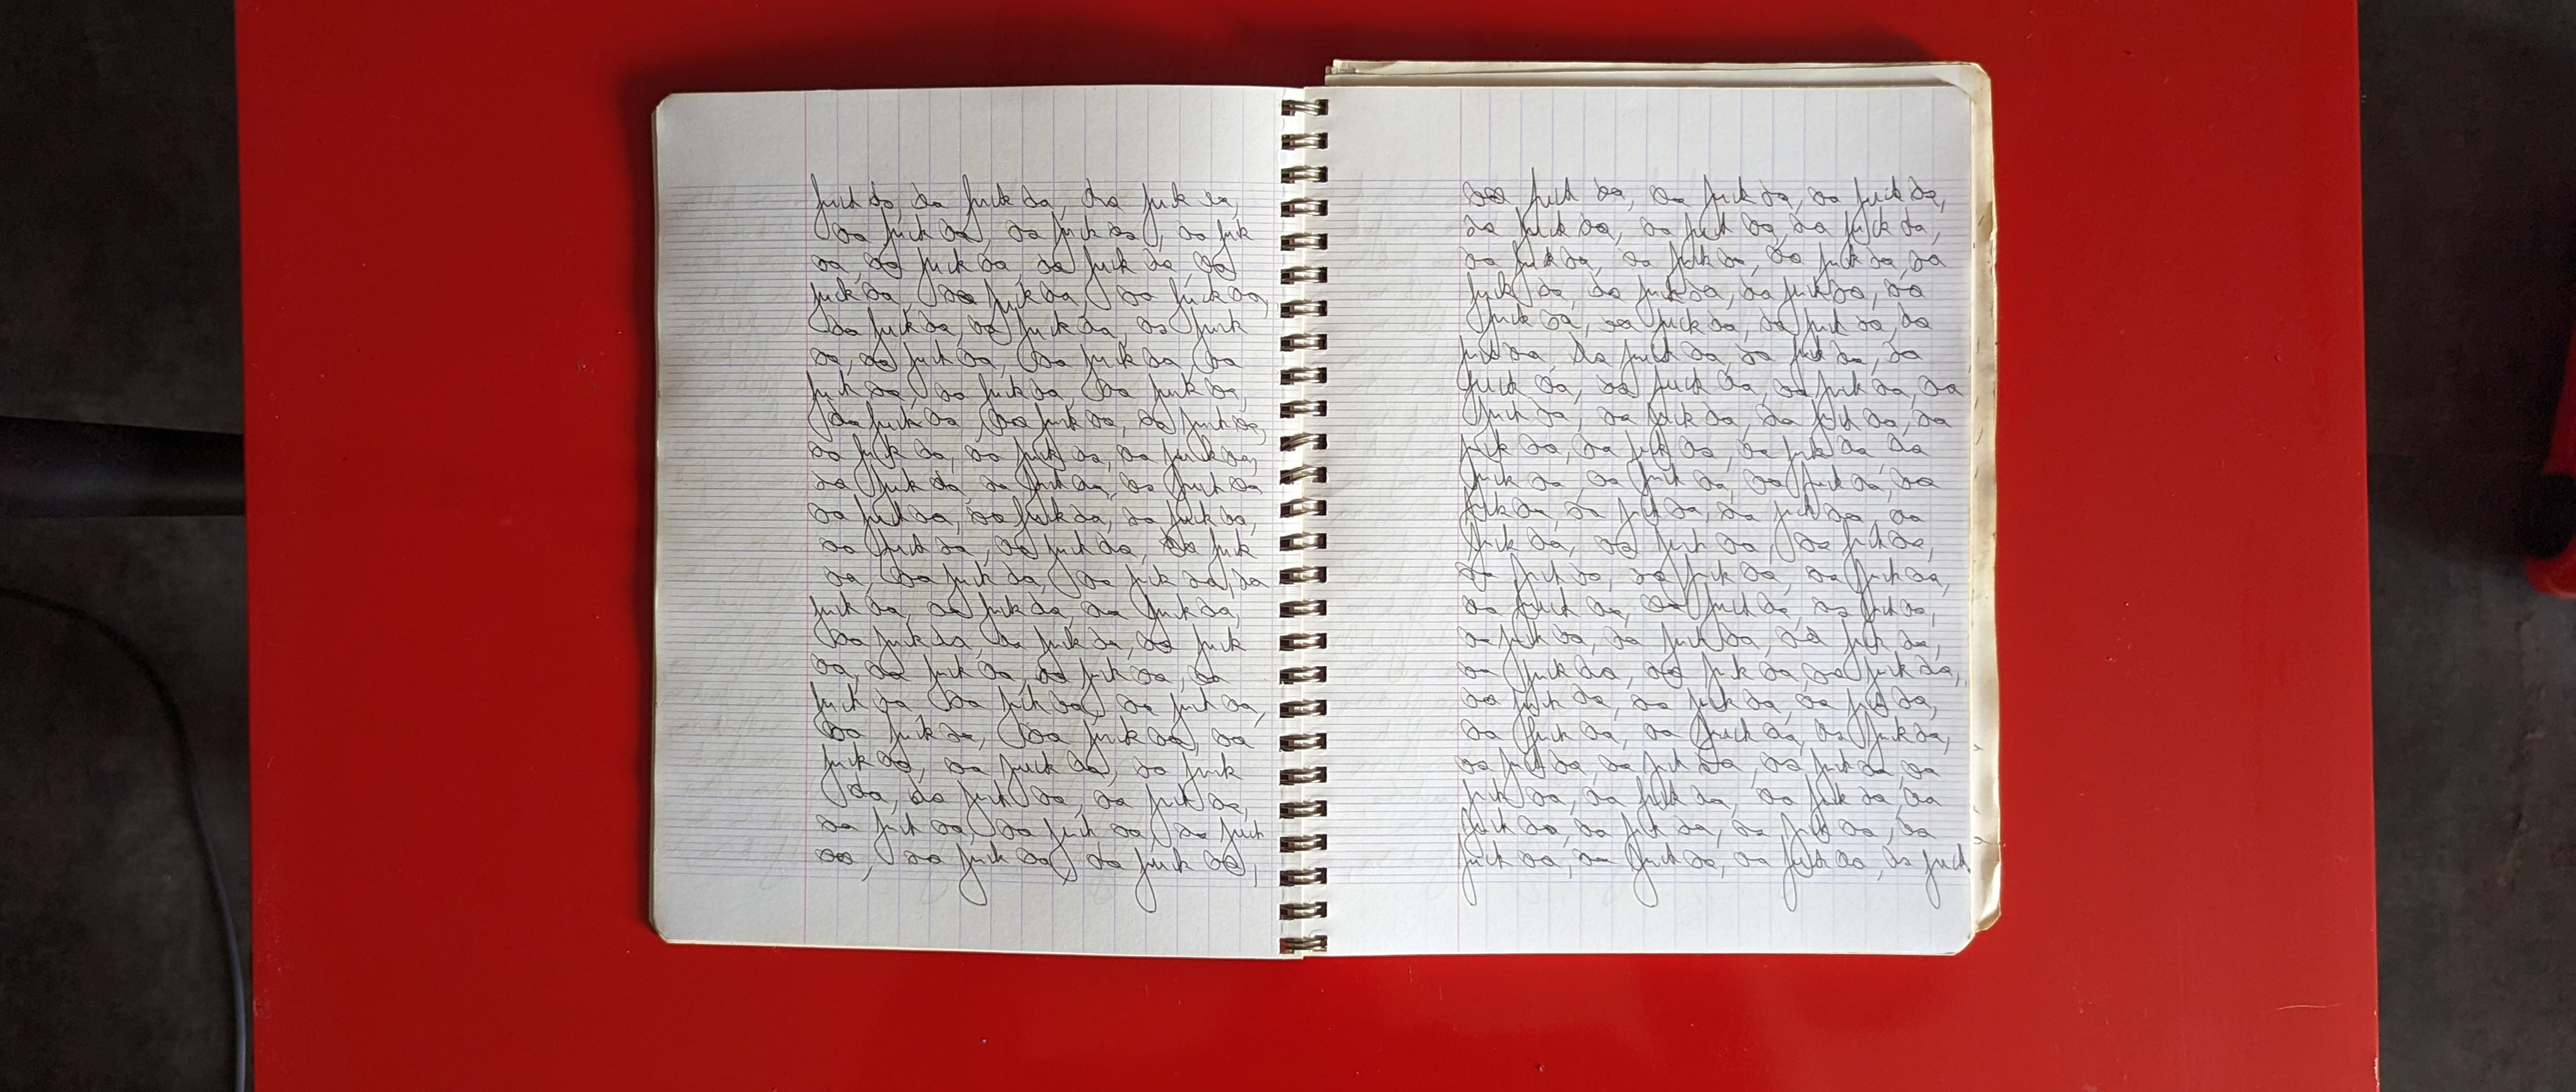 fuck da, da fuck da, da fuck da,
da fuck da, da fuck da, da fuck
da, da fuck da, da fuck da, da
fuck da, da fuck da, da fuck da,
da fuck da, da fuck da, da fuck
da, da fuck da, da fuck da, da
fuck da, da fuck da, da fuck da,
da fuck da, da fuck da, da fuck da,
da fuck da, da fuck da, da fuck da,
da fuck da, da fuck da, da fuck da
da fuck da, da fuck da, da fuck da,
da fuck da, da fuck da, da fuck
da, da fuck da, da fuck da, da
fuck da, da fuck da, da fuck da,
da fuck da, da fuck da, da fuck
da, da fuck da, da fuck da, da
fuck da, da fuck da, da fuck da,
da fuck da, da fuck da, da
fuck da, da fuck da, da fuck
da, da fuck da, da fuck da,
da fuck da, da fuck da, da fuck
da, da fuck da, da fuck da,
da fuck da, da fuck da, da fuck da,
da fuck da, da fuck da, da fuck da,
da fuck da, da fuck da, da fuck da, da
fuck da, da fuck da, da fuck da, da
fuck da, da fuck da, da fuck da, da
fuck da, da fuck da, da fuck da, da
fuck da, da fuck da, da fuck da, da
fuck da, da fuck da, da fuck da, da
fuck da, da fuck da, da fuck da, da
fuck da, da fuck da, da fuck da, da
fuck da, da fuck da, da fuck da, da
fuck da, da fuck da, da fuck da,
da fuck da, da fuck da, da fuck da,
da fuck da, da fuck da, da fuck da,
da fuck da, da fuck da, da fuck da,
da fuck da, da fuck da, da fuck da,
da fuck da, da fuck da, da fuck da,
da fuck da, da fuck da, da fuck da,
da fuck da, da fuck da, da fuck da, da
fuck da, da fuck da, da fuck da, da
fuck da, da fuck da, da fuck da, da
fuck da, da fuck da, da fuck da, da fuck